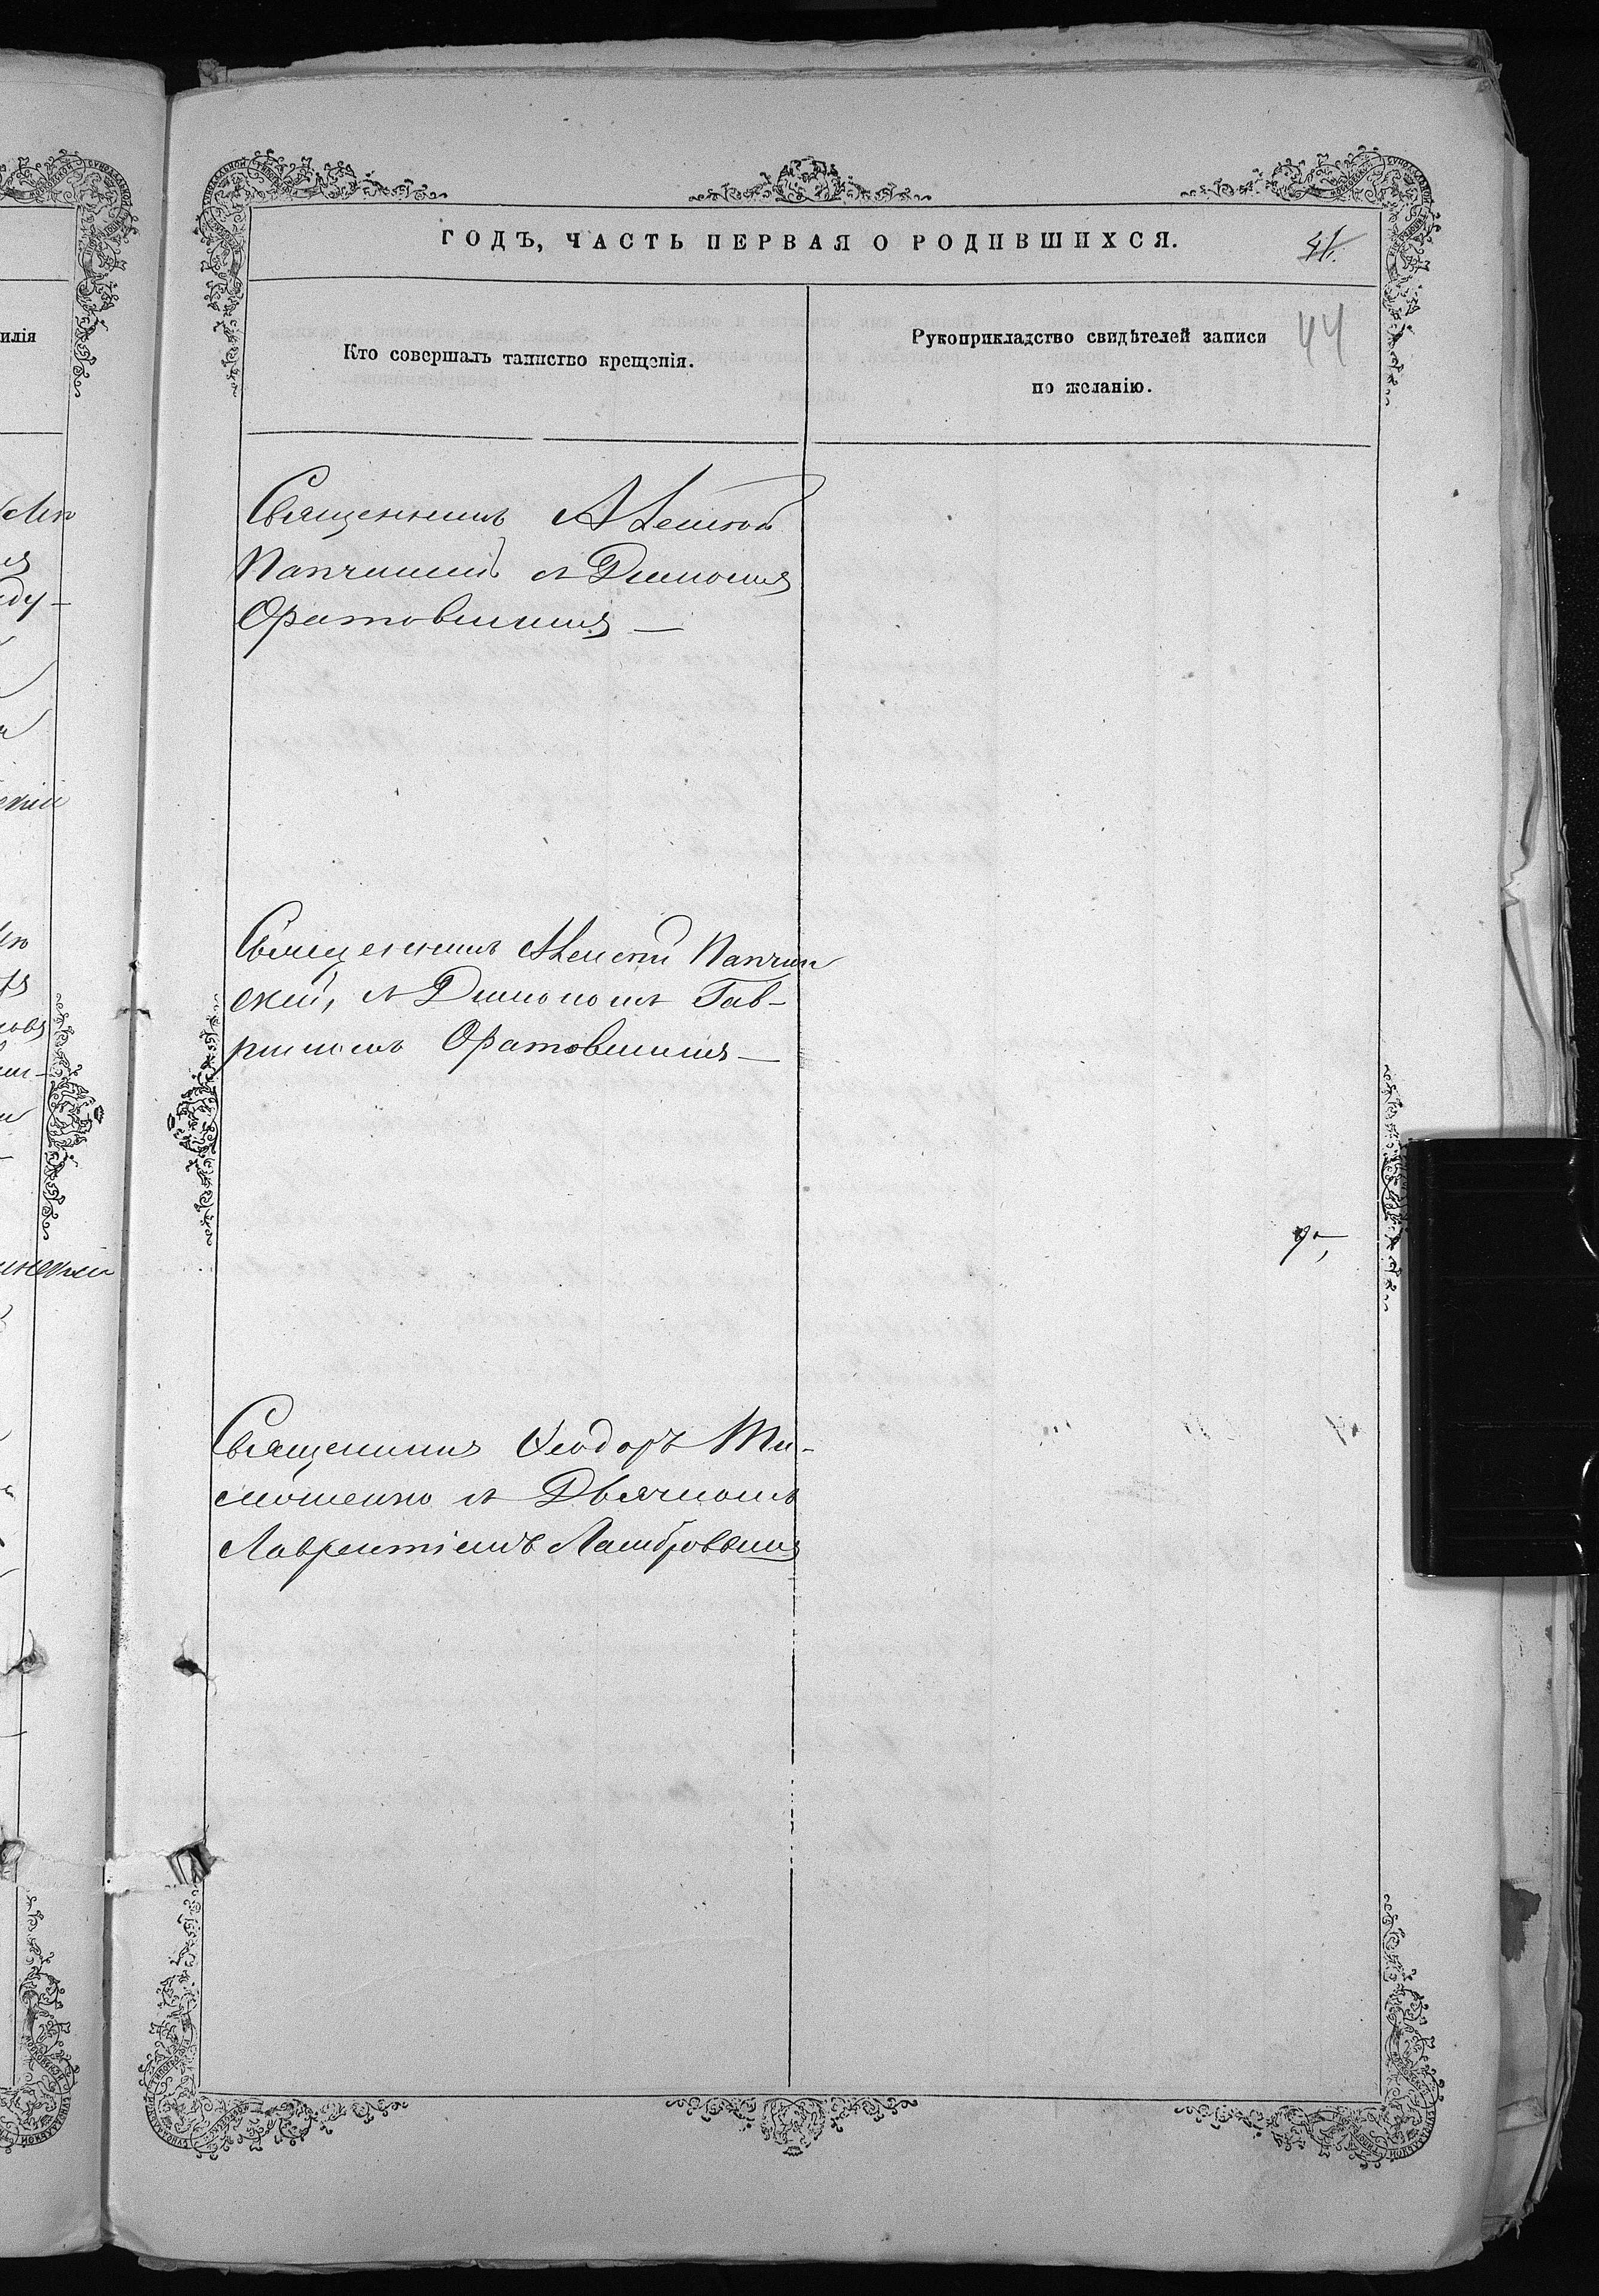 ГОДЪ, ЧАСТЬ ПЕРВАЯ О РОДИВШИХСЯ.
41.
44
Кто совершалъ таинство крещенія.
Рукоприкладство свидѣтелей записи
по желанію.
илія
Священникъ Алексѣй
Панчинскій съ Дьякономъ
Оратовскимъ —
Священникъ Алексій Панчин
скій, съ Дьякономъ Гав-
рииломъ Оратовскимъ —
Священникъ Ѳеодоръ Ти-
мошенко съ Дьячкомъ
Лаврентіемъ